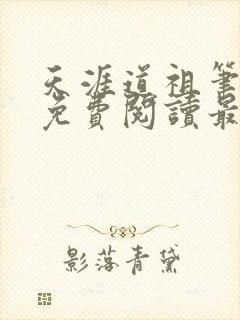 天涯道祖筆
免費閱讀最
影落青黛